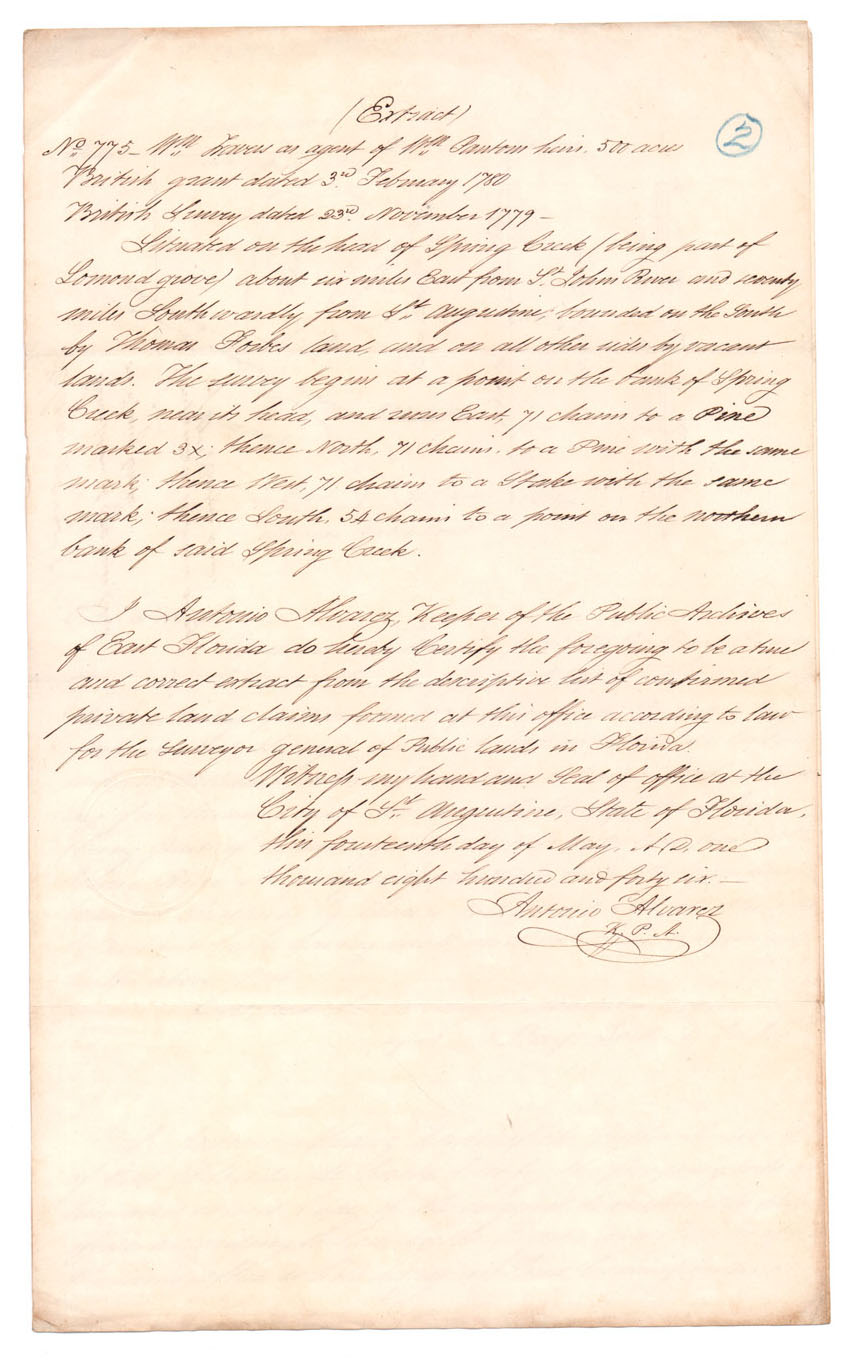 (Extract)
2
No 775 - Wm Travers as agent of Wm Pantons heirs. 500 acres
British grant dated 3rd February 1780
British Survey dated 23rd November 1779 -
Situated on the head of Spring Creek (being part of
Lomond grove) about six miles East from St. Johns River and seventy
miles Southwardly from St. Augustine; bounded on the South
by Thomas Forbes land, and on all other sides by vacant
lands. The survey begins at a point on the bank of Spring
Creek, near its head, and runs East, 71 chains to a Pine
marked 3x; thence North, 71 chains. to a Pine with the same
mark; thence West, 71 chains to a Stake with the same
mark; thence South, 54 chains to a point on the northern
bank of said Spring Creek.
I Antonio Alvarez, Keeper of the Public Archives
of East Florida do hereby Certify the foregoing to be a true
and correct extract from the descriptive list of confirmed
private land claims formed at this office according to law
for the Surveyor general of Public lands in Florida.
Witness my hand and Seal of office at the
City of St. Augustine, State of Florida,
this fourteenth day of May, A.D. one
thousand eight hundred and forty six. -
Antonio Alvarez
K. P. A.